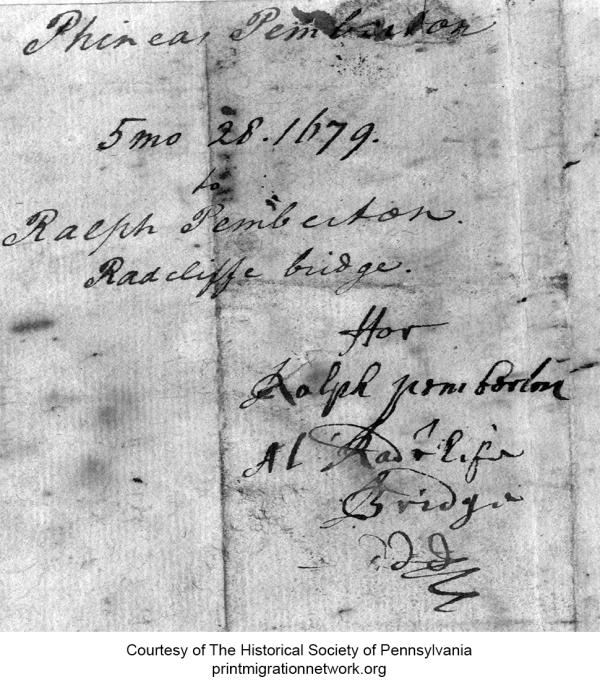 Phineas Pemberton
5 mo 28. 1679.
to
Ralph Pemberton.
Radcliffe bridge.
ffor
Ralph pemberton
At Radclife
Bridge
ddd
Courtesy of The Historical Society of Pennsylvania
printmigrationnetwork.org